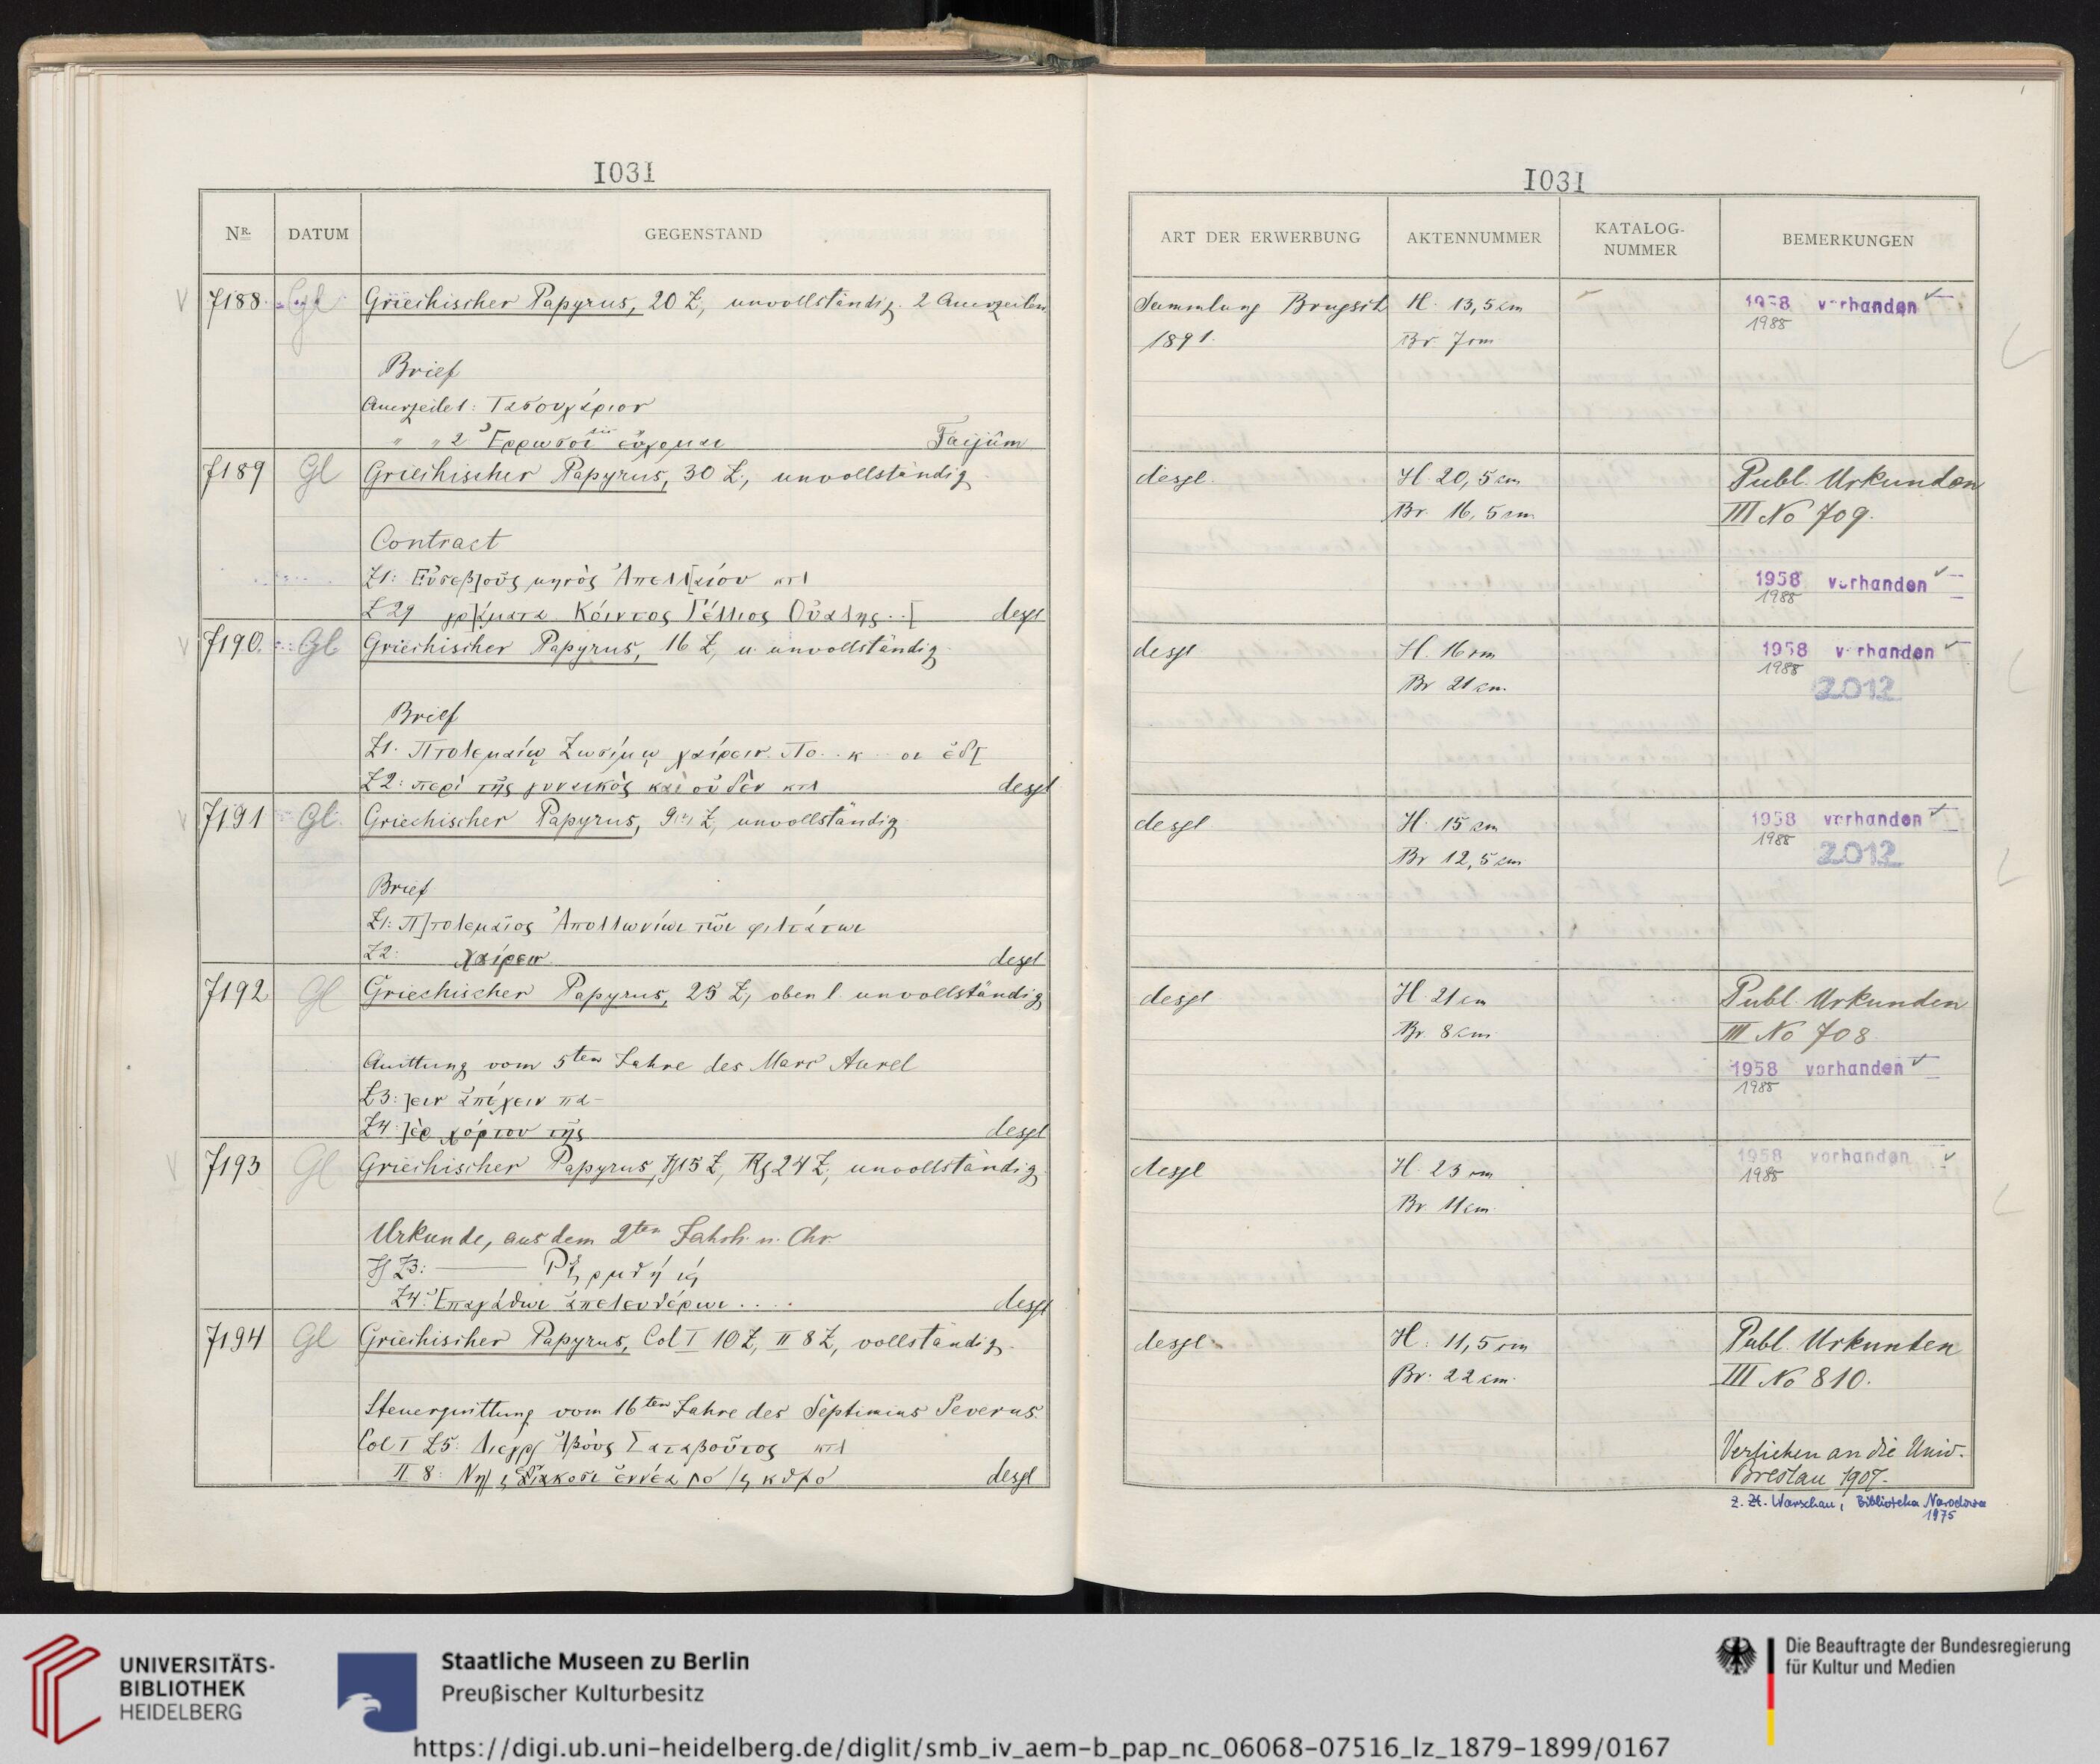 1031
1031
Nr. DATUM GEGENSTAND
ART DER ERWERBUNG AKTENNUMMER KATALOG-NUMMER BEMERKUNGEN
7188 Gl Griechischer Papyrus, 20 Z, unvollständig. 2 Querzeilen
Brief
Querzeile 1:
" " 2 Faijûm
Sammlung Brugsch H. 13,5 cm 1958 vorhanden
1891. Br 7 cm 1988
7189 Gl Griechischer Papyrus, 30 Z, unvollständig
Contract
Z1: Εὐσεβ]οῦς μηνὸς Ἀπελλ[αίου κτλ
Z 29 γρ]άμματα Κόιντος Γέλλιος Οὐάλης ..[ desgl
desgl. H. 20,5 cm Publ. Urkunden
Br. 16,5 cm III No 709.
1958 vorhanden
1988
7190. Gl Griechischer Papyrus, 16 Z, u. unvollständig
Brief
Z1. Πτολεμαίῳ Ζωσίμῳ χαίρειν.
Z2: περὶ τῆς γυναικὸς καὶ οὐδὲν κτλ desgl
desgl H. 16 cm 1958 vorhanden
Br 21 cm. 1988
2012
7191 Gl. Griechischer Papyrus, 9 Z, unvollständig
Brief
Z1: Π]τολεμαῖος Ἀπολλωνίωι τῶι φιλτάτωι
Z2: χαίρειν desgl
desgl H. 15 cm 1958 vorhanden
Br 12,5 cm 1988
2012
7192 Gl Griechischer Papyrus, 25 Z, oben l. unvollständig
Quittung vom 5ten Jahre des Marc Aurel
Z3: ]ειν ἀπέχειν πα-
Z4: χόρτου τῆς desgl
desgl H. 21 cm Publ. Urkunden
Br. 8 cm III No 708
1958 vorhanden
1988
7193 Gl Griechischer Papyrus, 15 Z, 24 Z, unvollständig.
Urkunde, aus dem 2ten Jahrh. n. Chr.
Z3:
Z4: Ἐπαγάθωι ἀπελευθέρωι .... desgl
desgl H. 23 cm 1958 vorhanden
Br. 11 cm. 1988
7194 Gl Griechischer Papyrus, Col I 10 Z, II 8 Z, vollständig.
Steuerquittung vom 16ten Jahre des Septimius Severus.
Col I Z5: Διεγρ( Σαταβοῦτος κτλ
II 8: ἐννέα desgl
desgl. H. 11,5 cm Publ. Urkunden
Br. 22 cm. III No 810.
Verliehen an die Univ.
Breslau 1907.
z. Zt. Warschau, Biblioteka Narodowa
1975
UNIVERSITÄTS-
BIBLIOTHEK
HEIDELBERG
Staatliche Museen zu Berlin
Preußischer Kulturbesitz
Die Beauftragte der Bundesregierung
für Kultur und Medien
https://digi.ub.uni-heidelberg.de/diglit/smb_iv_aem-b_pap_nc_06068-07516_lz_1879-1899/0167